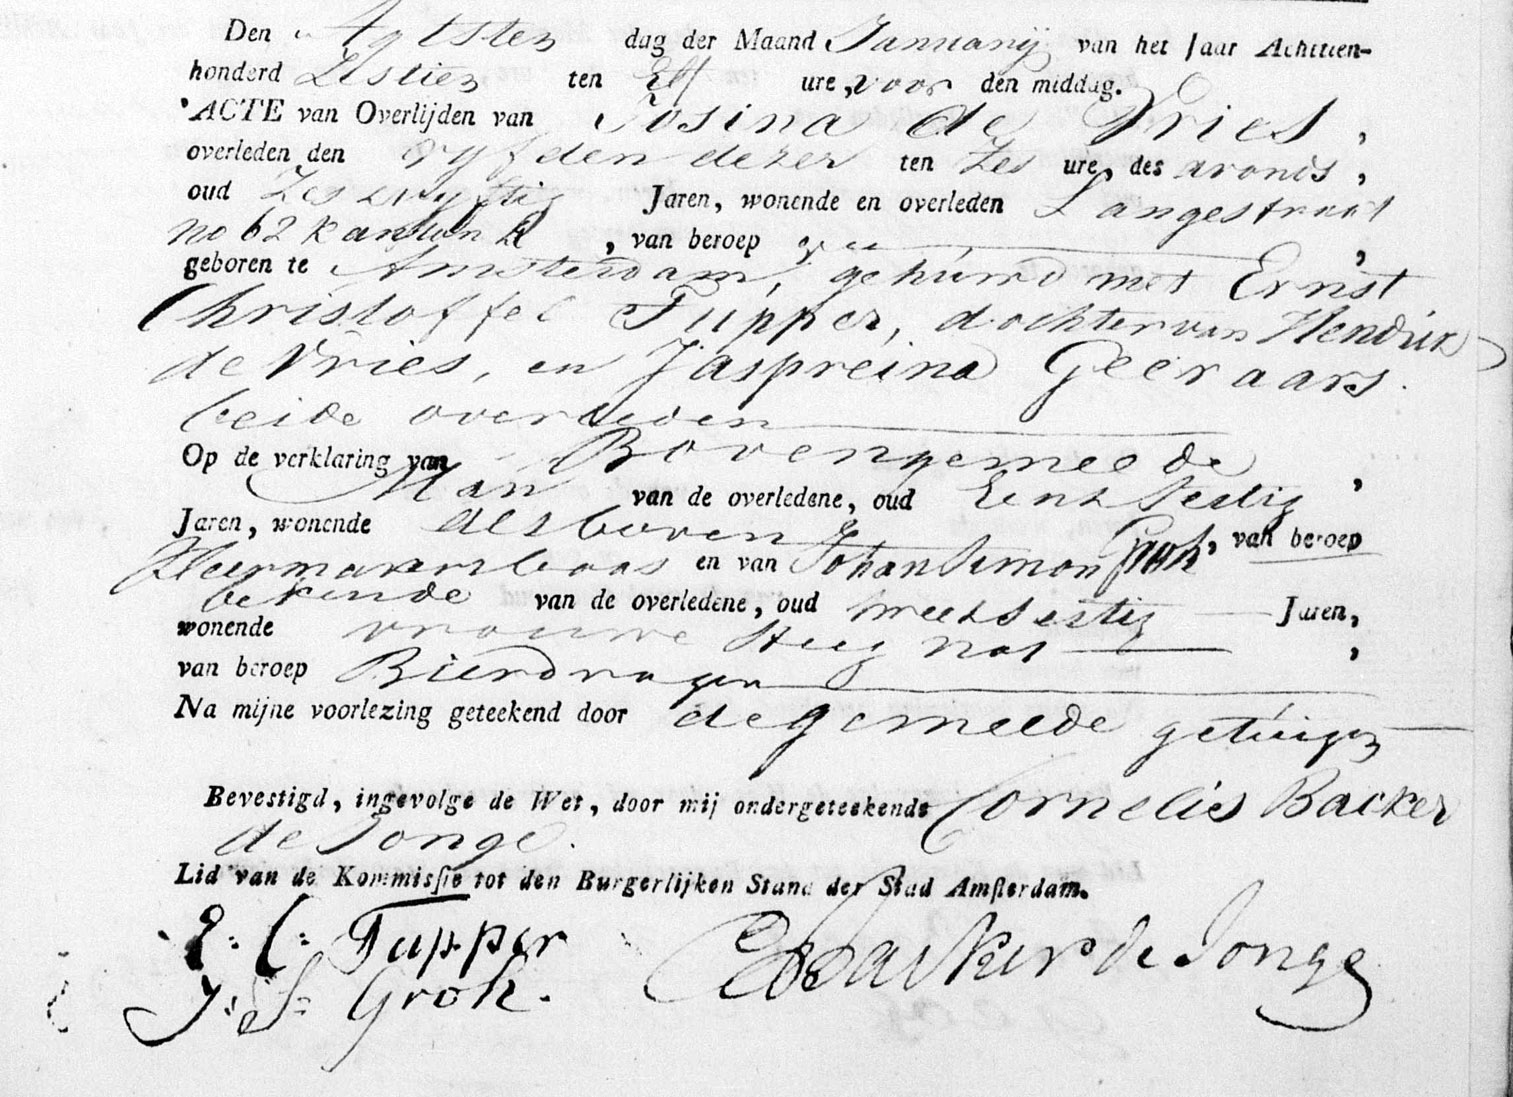 Den Agtsten dag der Maand Januarij van het Jaar Achttien-
honderd Zestien ten Elf ure, voor den middag.
ACTE van Overlijden van Josina de Vries,
overleden den vyfden dezer ten Zes ure, des avonds,
oud Zes en vyftig Jaren, wonende en overleden Langestraat
no 62 kanton 2, van beroep geen,
geboren te Amsterdam, gehuwd met Ernst
Christoffel Tupper, dochter van Hendrik
de Vries, en Jaspreina Geeraars.
beide overleden
Op de verklaring van Bovengemeede
Man van de overledene, oud Een Sestig,
Jaren, wonende als boven, van beroep
Kleermakersbaas en van Johan Simon Groh,
bekende van de overledene, oud twee Sestig Jaren,
wonende vrouwe Steeg No 1,
van beroep Bierdrager
Na mijne voorlezing geteekend door de gemeede getuigen
Bevestigd, ingevolge de Wet, door mij ondergeteekende Cornelis Backer
de Jonge.
Lid van de Kommissie tot den Burgerlijken Stand der Stad Amsterdam.
E: C: Tupper
C Backer de Jonge
J: S: Groh.